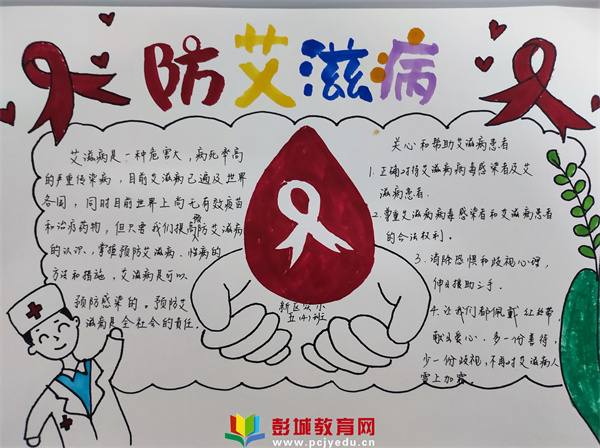 防艾滋病
艾滋病是一种危害大，病死率高
的严重传染病，目前艾滋病已遍及世界
各国，同时目前世界上尚无有效疫苗
和治疗药物，但只要我们提高预防艾滋病
的认识，掌握预防艾滋病、性病的
方法和措施，艾滋病是可以
预防感染的。预防艾
滋病是全社会的责任。
关心和帮助艾滋病患者
1.正确对待艾滋病病毒感染者及艾
滋病患者.
2.尊重艾滋病病毒感染者和艾滋病患者
的合法权利。
3.消除恐惧和歧视心理，
伸出援助之手.
4.让我们都佩戴红丝带
献出爱心.多一份善待，
少一份歧视，不再对艾滋病人
雪上加霜.
五(4)班
彭城教育网
www.pcjyedu.cn